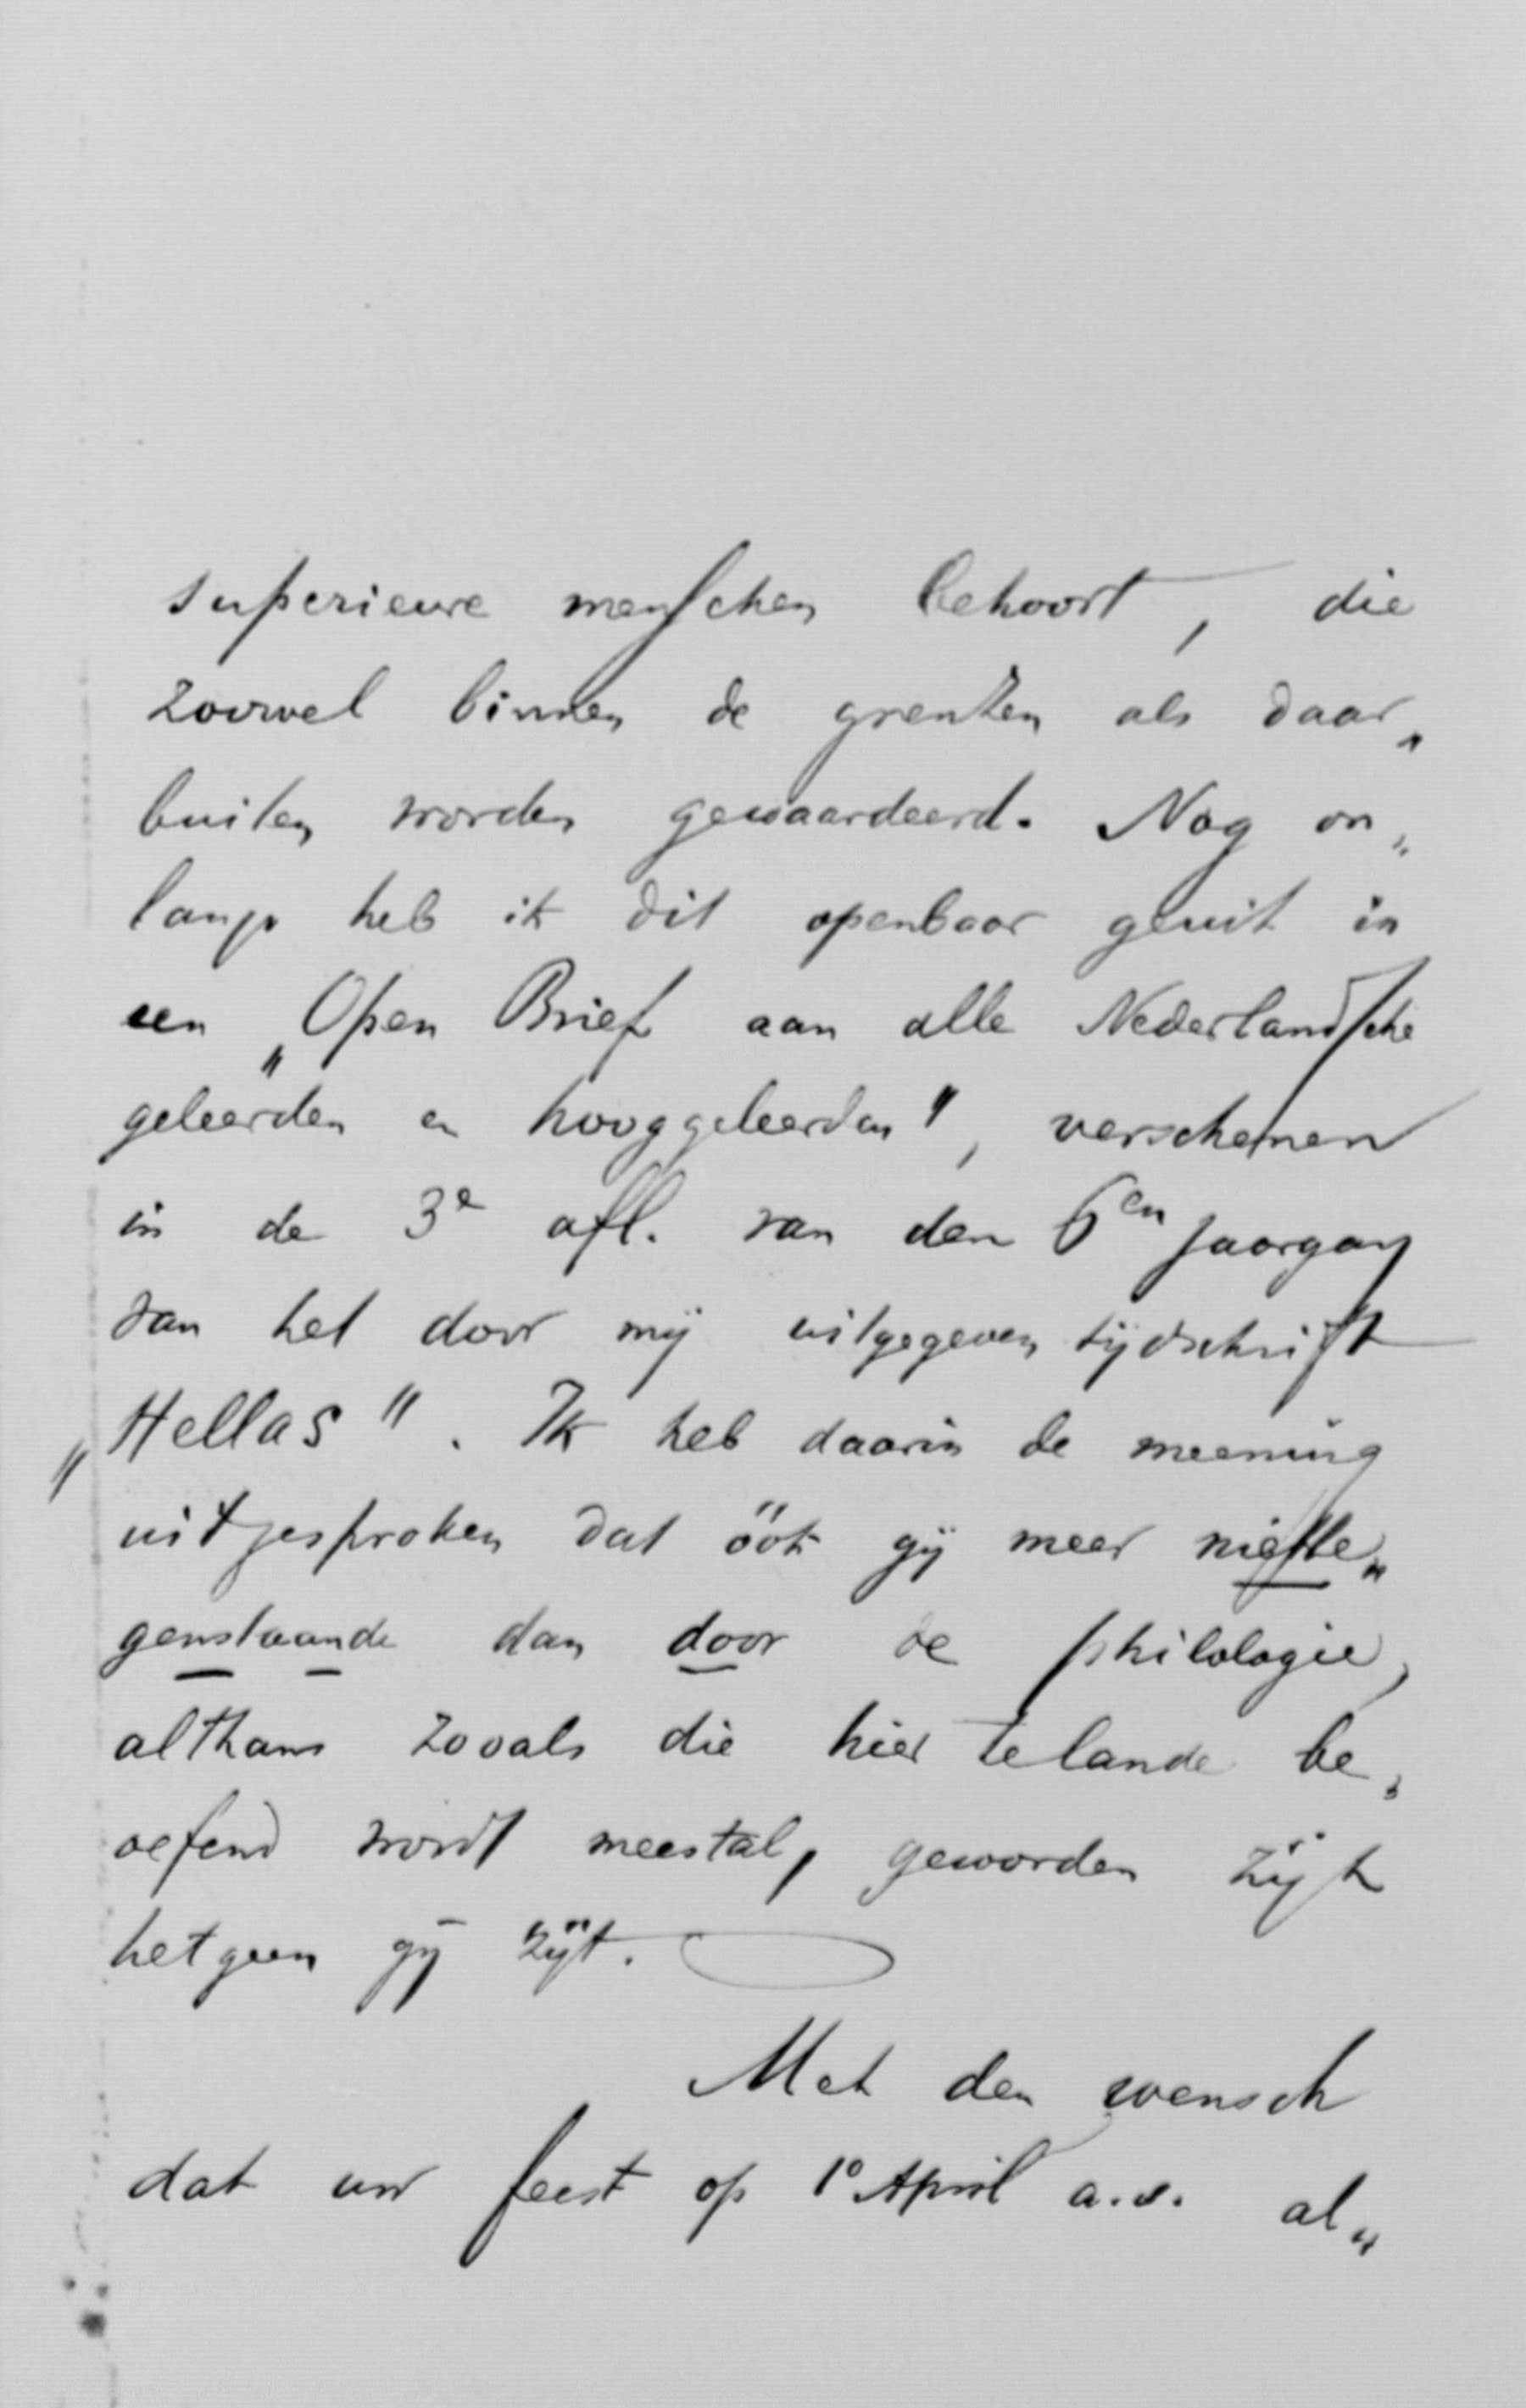 superieure menschen behoort, die
zoowel binnen de grenzen als daar„
buiten worden gewaardeerd. Nog on„
langs heb ik dit openbaar geuit in
een „Open Brief aan alle Nederlandsche
geleerden en hooggeleerden", verschenen
in de 3e afl. van den 6en jaargang
van het door mij uitgegeven tijdschrift
„Hellas". Ik heb daarin de meening
uitgesproken dat óók gij meer niette„
genstaande dan door de philologie,
althans zooals die hier te lande be„
oefend wordt meestal, geworden zijt
hetgeen gij zijt.
Met den wensch
dat uw feest op 1o April a.s. al„